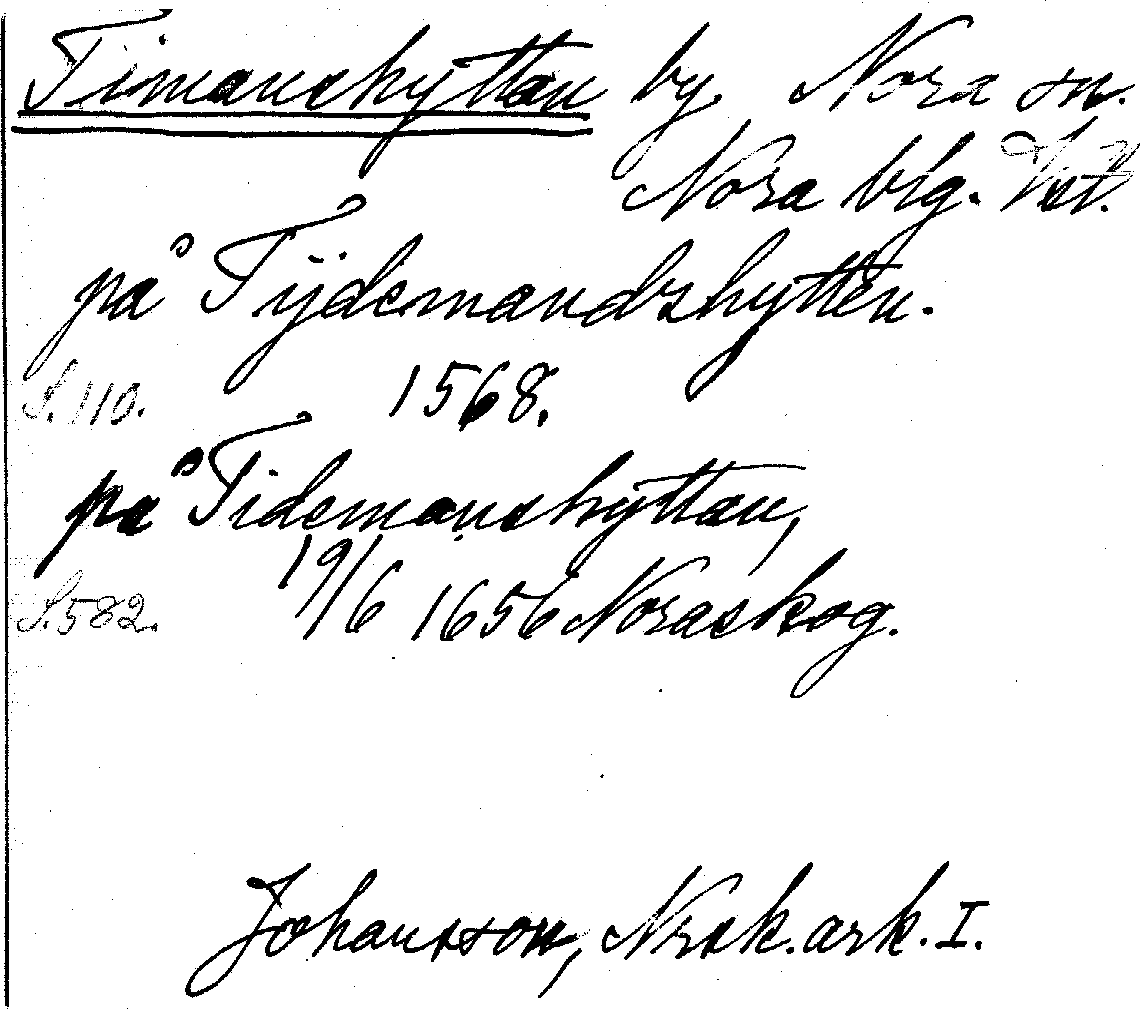 Timanshyttan by, Nora sn.
Nora blg. Vstl.
på Tÿdemandzhytten.
S. 110. 1568.
på Tidemanshÿttan,
S. 582. 19/6 1656 Noraskog.
Johansson, Nrsk. ark. I.